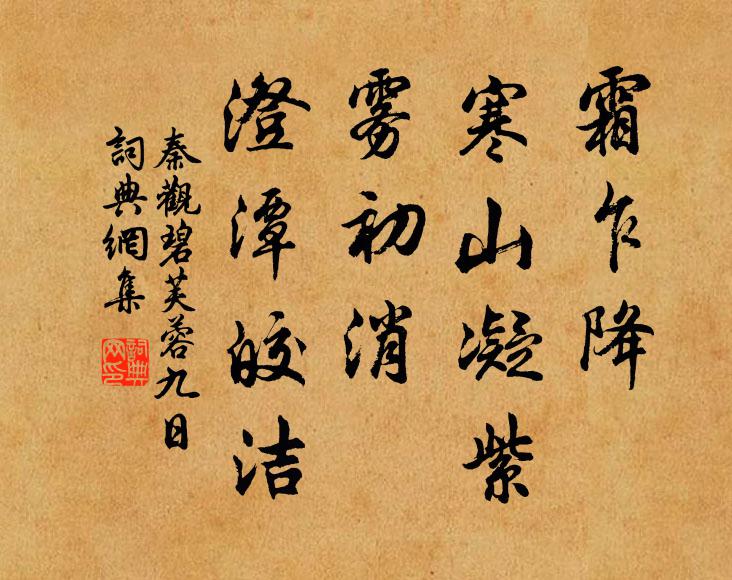 霜乍降
寒山凝紫
雾初消
澄潭皎洁
秦觀碧芙蓉九日
詞典網集
詞典網印